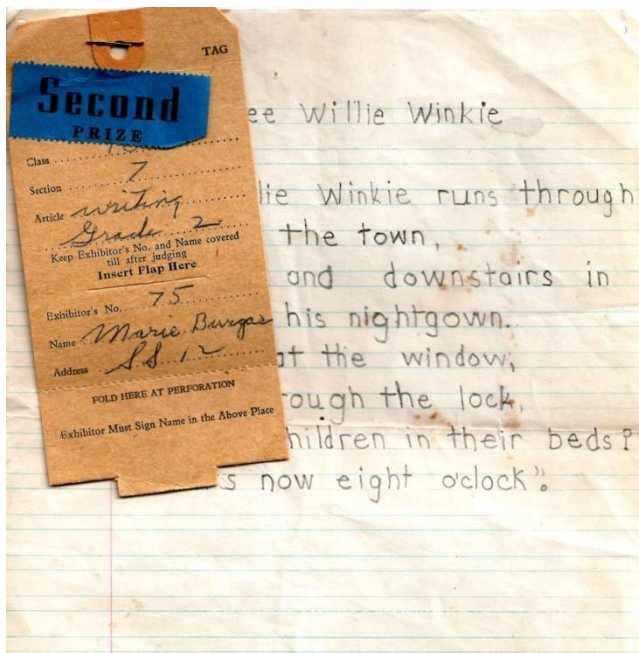 TAG
Second
PRIZE
Class
Section 7
Article writing
Grade 2
Keep Exhibitor's No. and Name covered
till after judging
Insert Flap Here
Exhibitor's No. 75
Name Marie Burgas
Address S.S. 12
FOLD HERE AT PERFORATION
Exhibitor Must Sign Name in the Above Place
ee Willie Winkie
lie Winkie runs through
the town,
and downstairs in
his nightgown.
at the window,
rough the lock,
hildren in their beds?
s now eight o'clock".